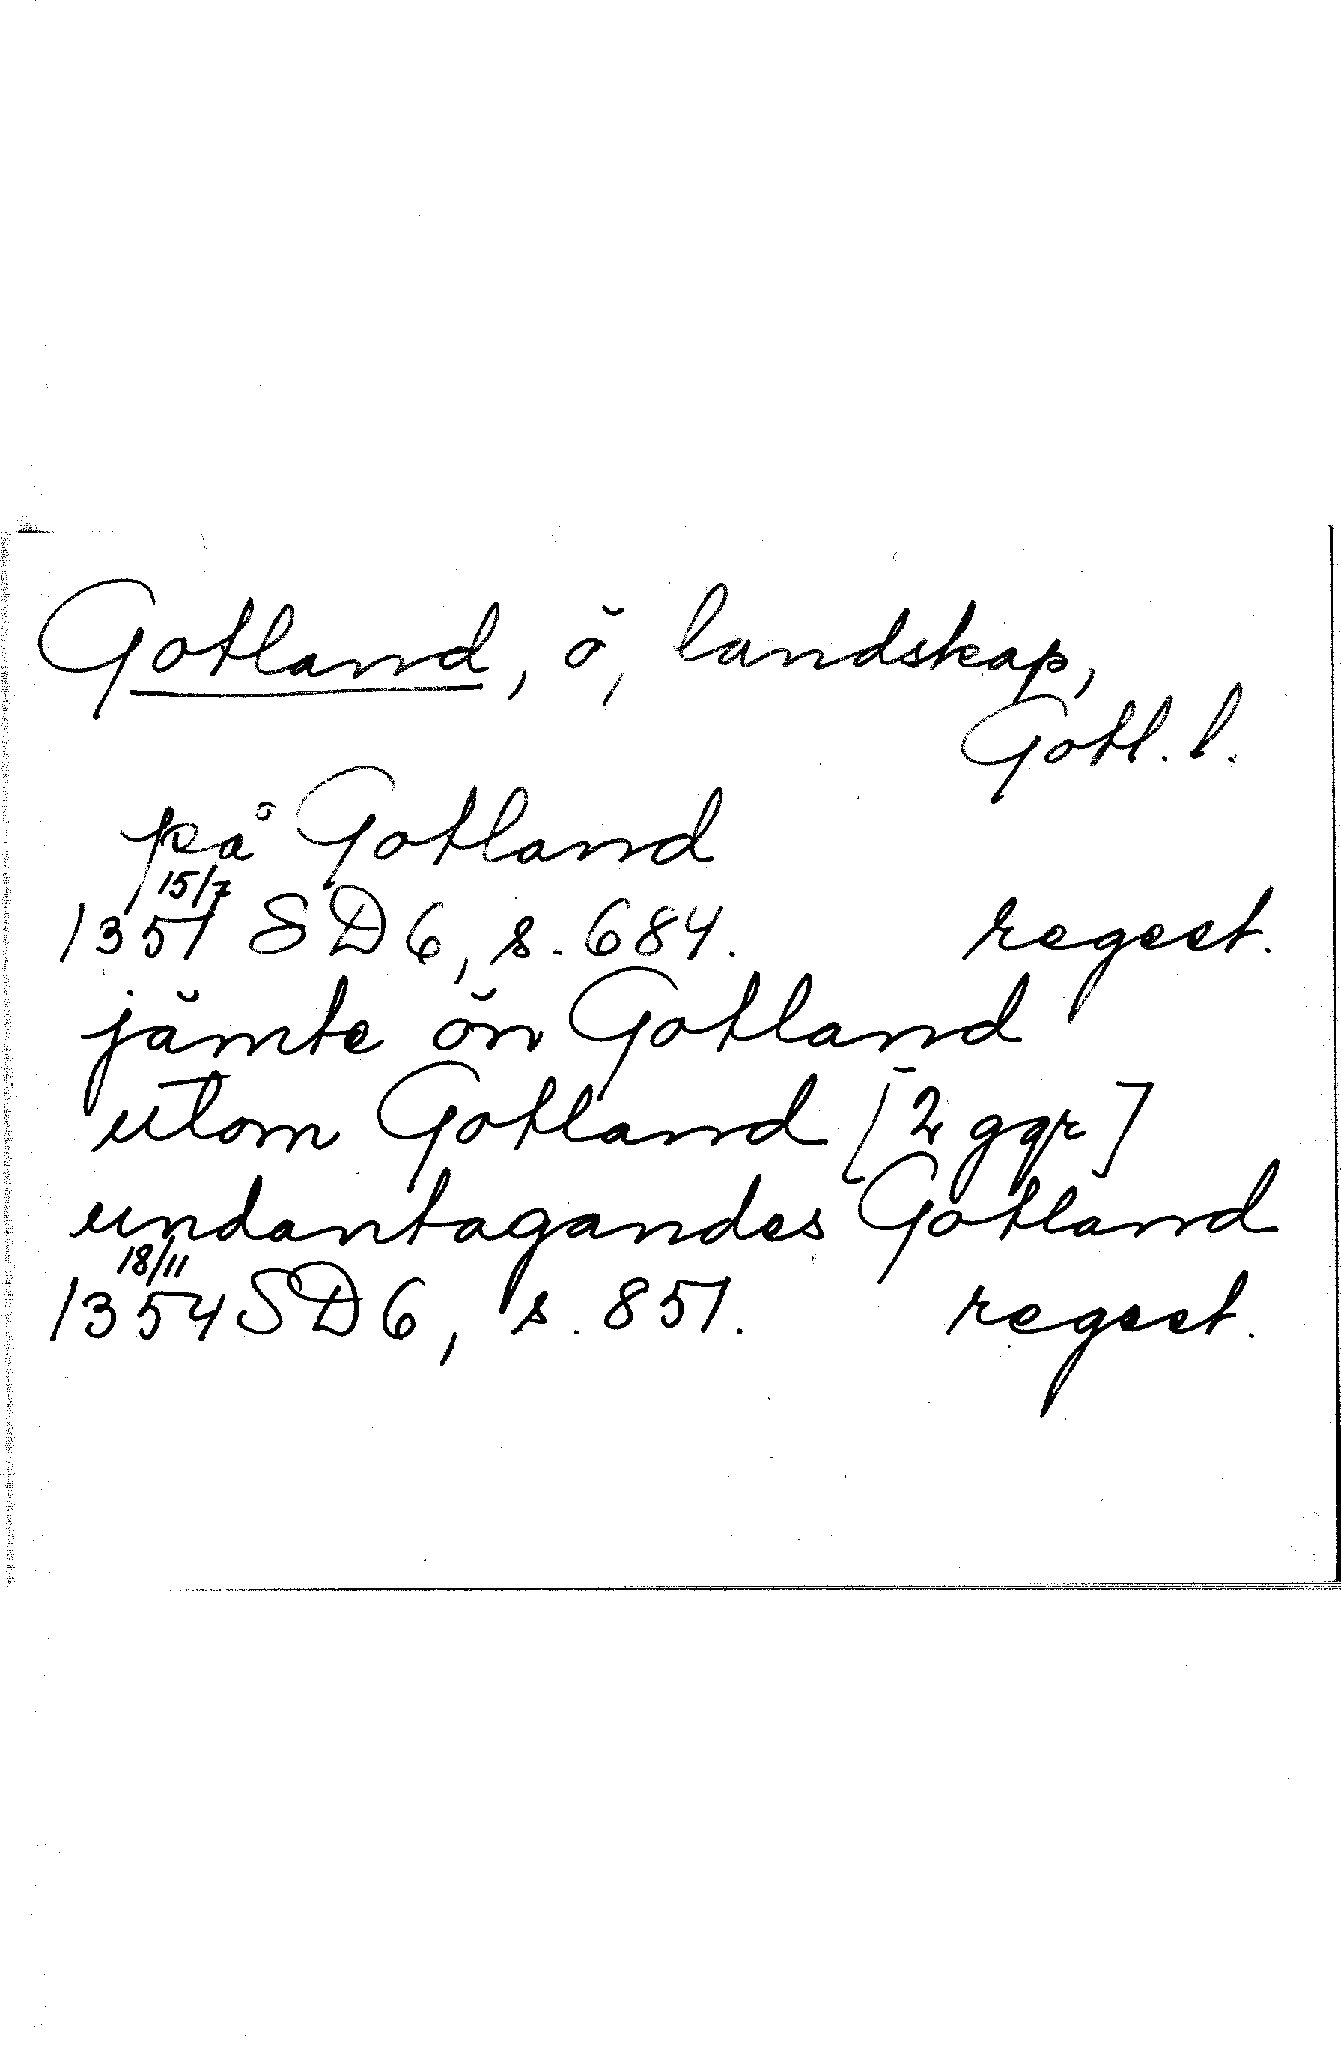 Gotland, ö, landskap,
Gotl. l.
på Gotland
15/7
1351 SD 6, s. 684. regest.
jämte ön Gotland
utom Gotland [2 ggr]
undantagandes Gotland
18/11
1354 SD 6, s. 851. regest.